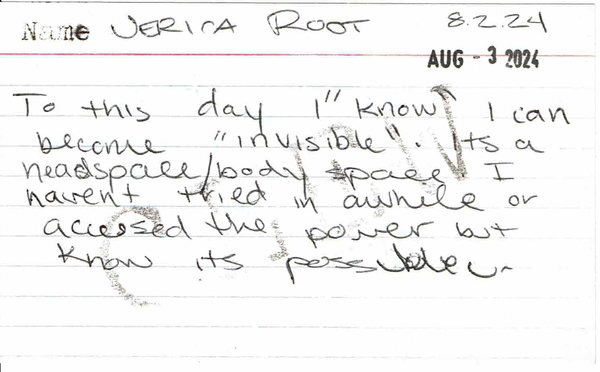 Name JERICA ROOT 8.2.24
AUG - 3 2024
To this day I "know" I can
become "invisible". Its a
headspace/body space. I
havent tried in awhile or
accessed the power but
know its possible.